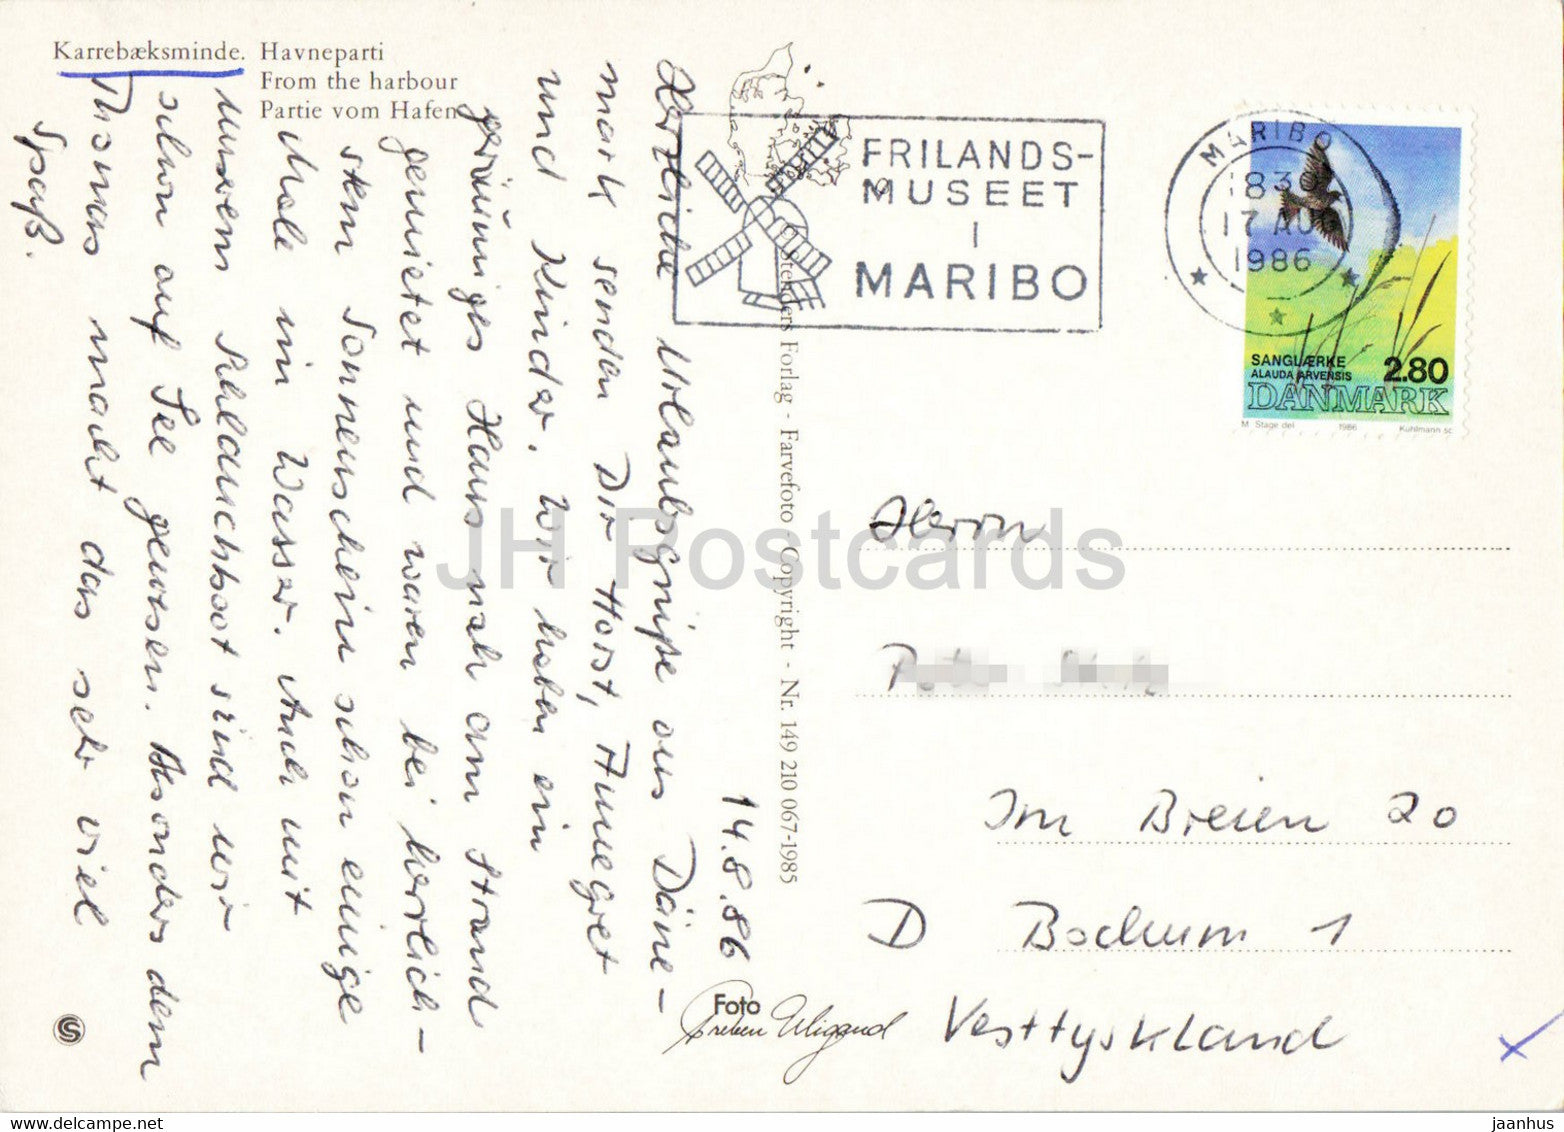 Karrebæksminde. Havneparti
From the harbour
Partie vom Hafen
FRILANDS-
MUSEET
I
MARIBO
MARIBO
1830
17 AUG
1986
SANGLÆRKE
ALAUDA ARVENSIS
2.80
DANMARK
M Stage del 1986 Kuhlmann sc
14.8.86
Herzliche Urlaubsgrüße aus Däne-
mark senden Dir Horst, Annegret
und Kinder. Wir haben ein
geräumiges Haus nah am Strand
gemietet und waren bei herrlich-
stem Sonnenschein schon einige
Male im Wasser. Auch mit
unserem Schlauchboot sind wir
schon auf See gewesen. Besonders dem
Thomas macht das sehr viel
Spaß.
Stenders Forlag - Farvefoto - Copyright - Nr. 149 210 067-1985
Herrn
Im Breien 20
D Bochum 1
Vesttyskland
Foto
Preben Wigand
JH Postcards
www.delcampe.net
jaanhus